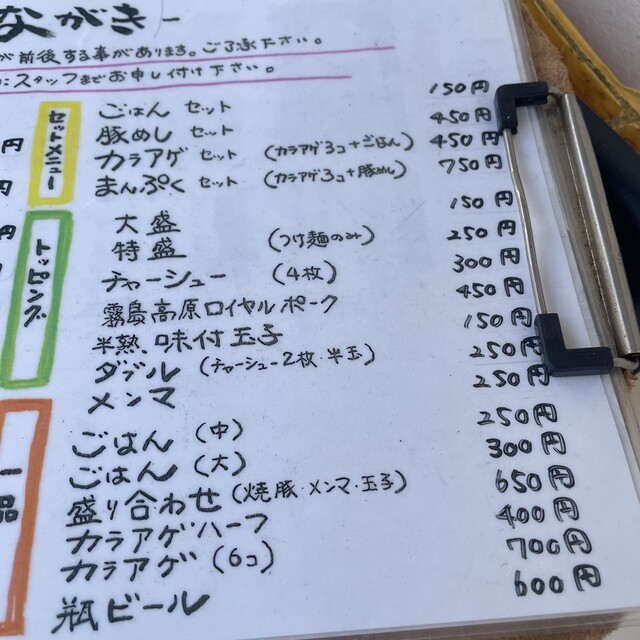 ながき-
が前後する事があります。ご了承下さい。
にスタッフまでお申し付け下さい。
セットメニュー
ごはん セット 150円
豚めし セット 450円
カラアゲ セット (カラアゲ3コ+ごはん) 450円
まんぷく セット (カラアゲ3コ+豚めし) 750円
トッピング
大盛 150円
特盛 (つけ麺のみ) 250円
チャーシュー (4枚) 300円
霧島高原ロイヤルポーク 450円
半熟、味付玉子 150円
ダブル (チャーシュー2枚・半玉) 250円
メンマ 250円
一品
ごはん (中) 250円
ごはん (大) 300円
盛り合わせ (焼豚・メンマ・玉子) 650円
カラアゲハーフ 400円
カラアゲ (6コ) 700円
瓶ビール 600円
円
円
円